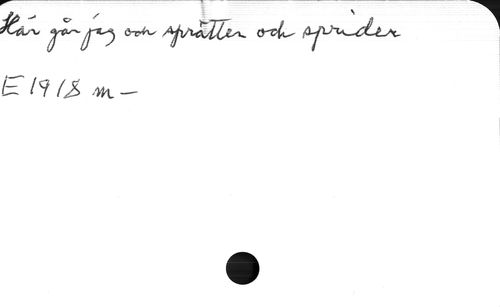 Här går jag och sprätter och sprider
E 1918 m -